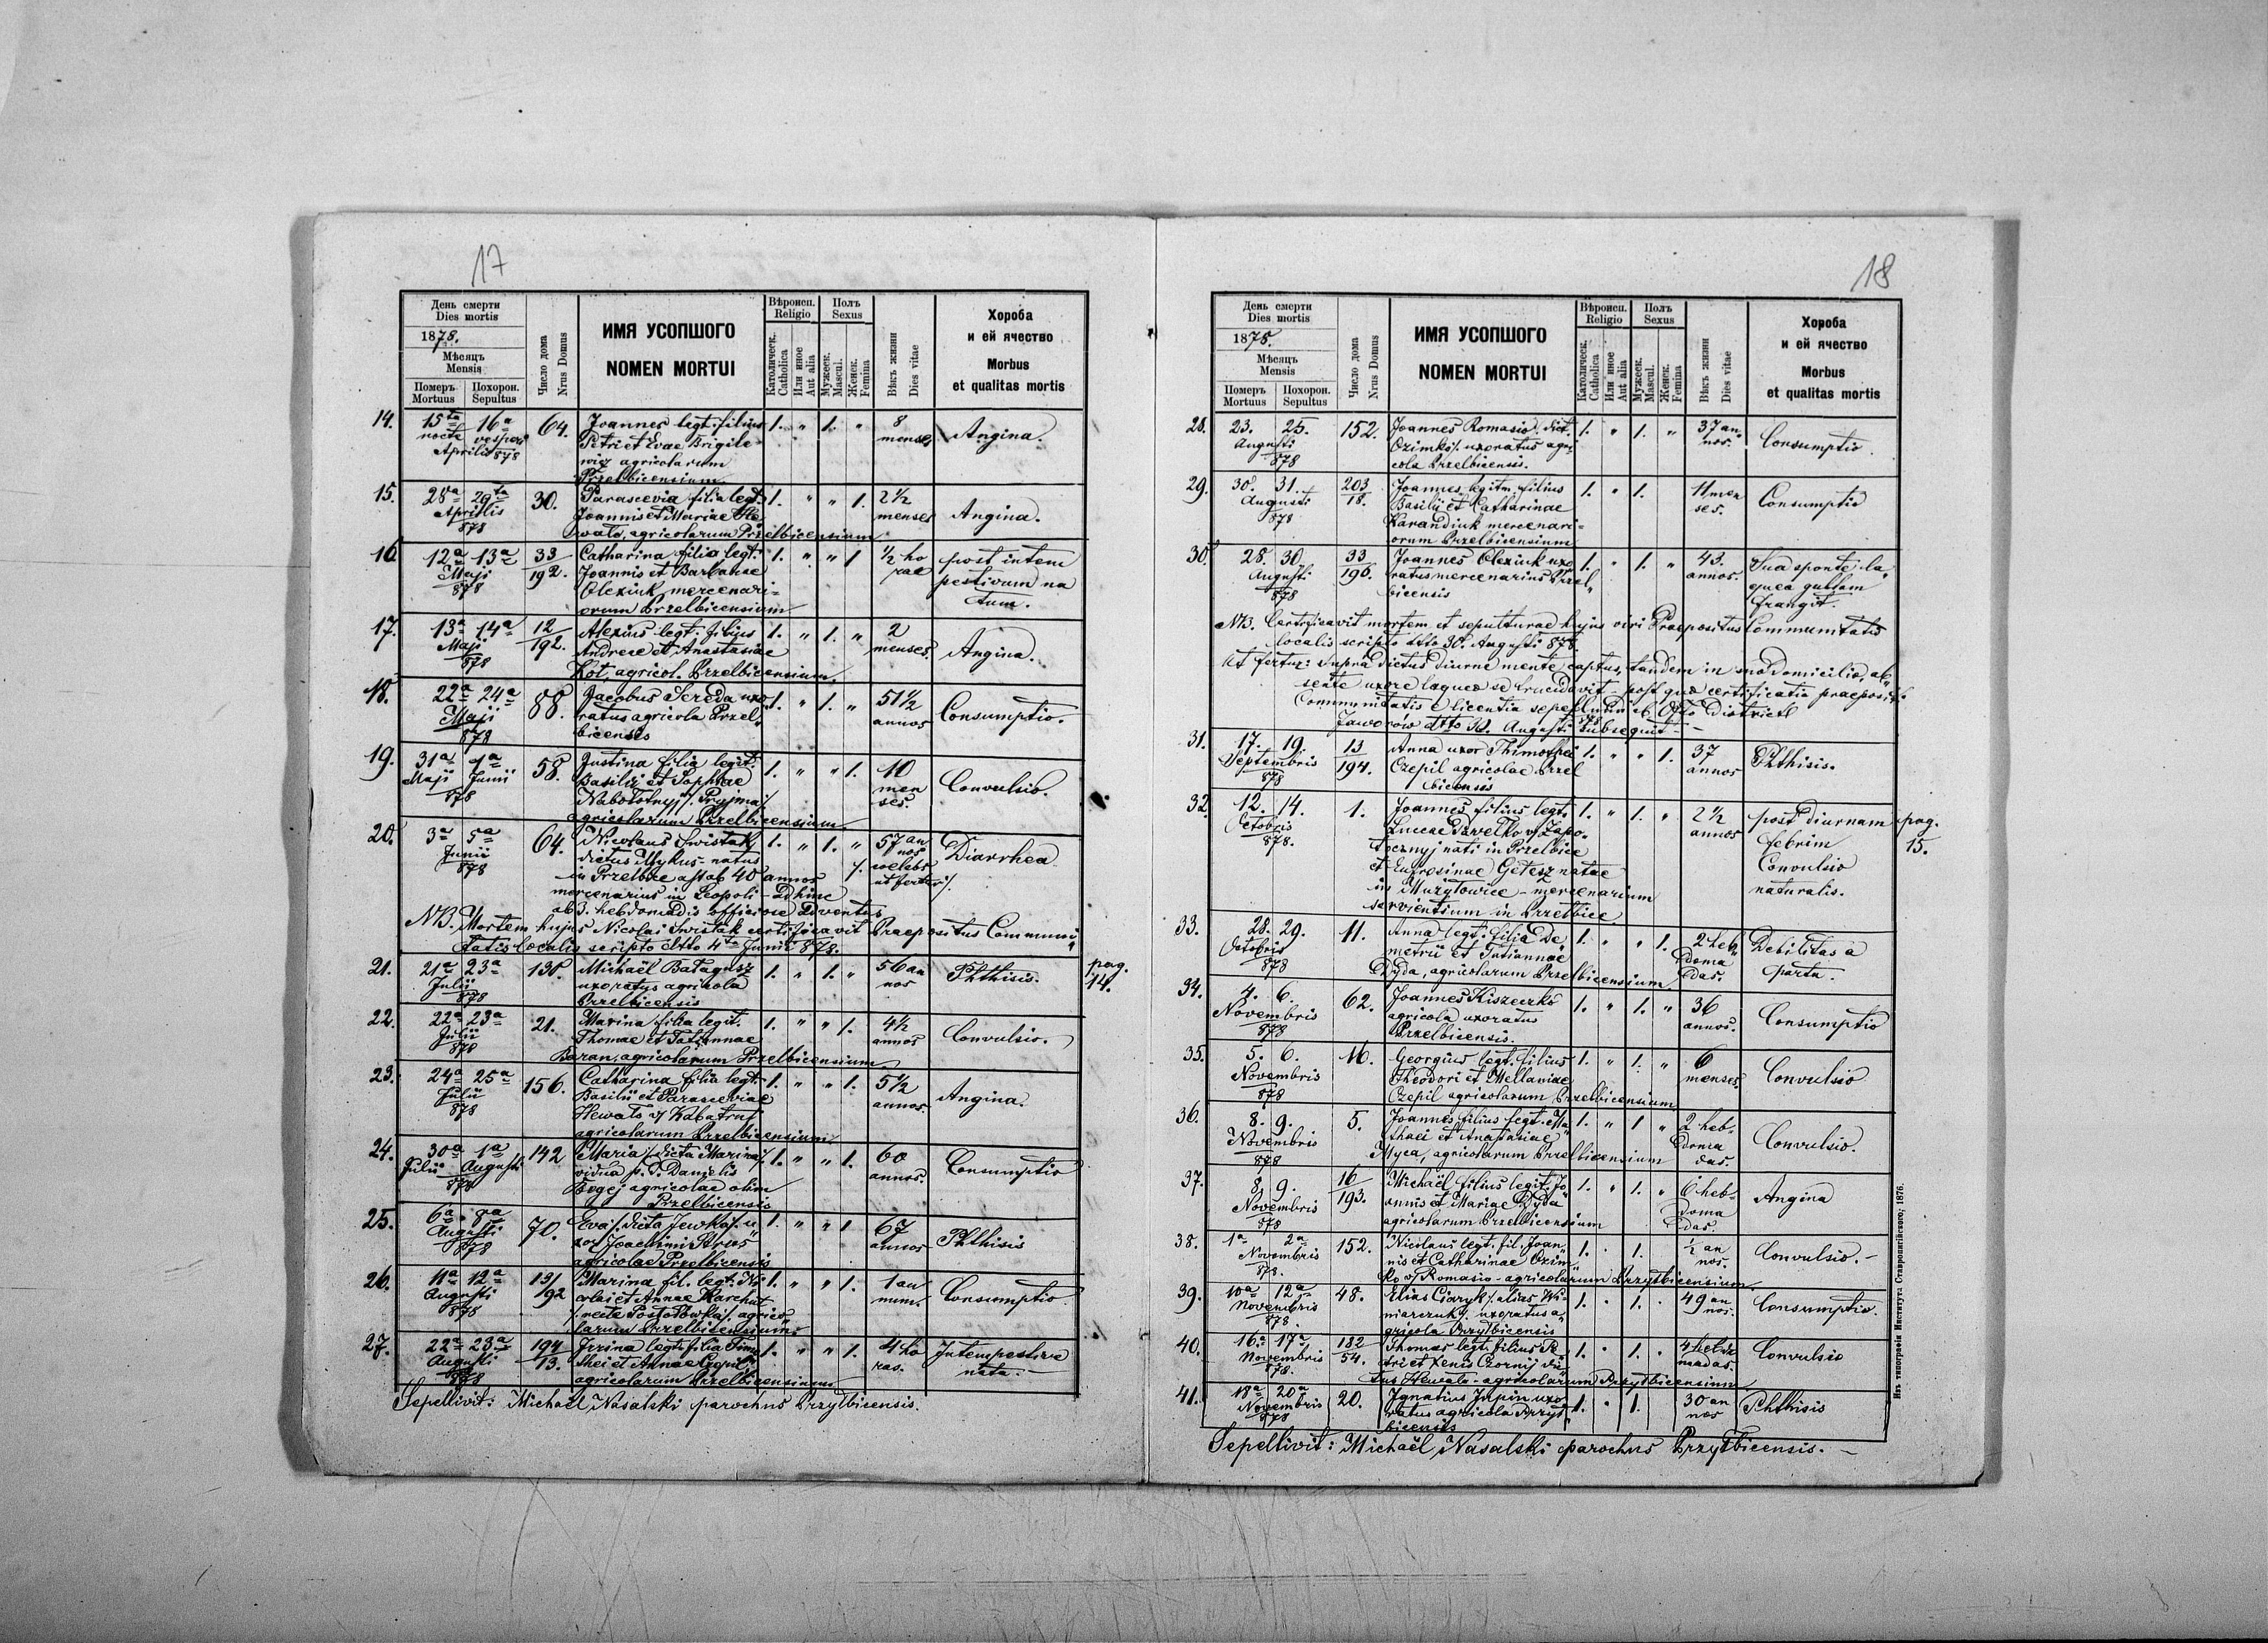 17
День смерти
Dies mortis
1878.
Мѣсяцъ
Mensis
Померъ
Mortuus
Похорон.
Sepultus
Число дома
Nrus Domus
ИМЯ УСОПШОГО
NOMEN MORTUI
Вѣроисп.
Religio
Католическ.
Catholica
Или иное
Aut alia
Полъ
Sexus
Мужеск.
Mascul.
Женск.
Femina
Вѣкъ жизни
Dies vitae
Хороба
и ей ячество
Morbus
et qualitas mortis
14. 15ta 16a 64. Joannes legt. filius 1. " 1. " 8 Angina.
nocte vesperi Petri et Evae Brigile menses
Aprilis 878 wicz agricolarum
Przelbicensium
15. 28a 29ta 30. Parascevia filia legt. 1. " " 1. 2½ Angina.
Aprilis Joannis et Mariae menses
878 agricolarum Przelbicensium
16. 12a 13a 33/192. Catharina filia legt. 1. " " 1 ½ ho post intem
Maji Joannis et Barbarae rae pestivum na
878 Olexiuk mercenari= tum.
orum Przelbicensium
17. 13a 14a 12/192. Alexius legt. filius 1. " 1. " 2 Angina.
Maji Andreae et Anastasiae menses.
878 Kot, agricol. Przelbicensium.
18. 22a 24a 88. Jacobus Sereda uxo 1. " 1. " 51½ Consumptio.
Maji ratus agricola Przel annos
878 bicensis
19. 31a 1a 58. Justina filia legit. 1. " " 1. 10 Convulsio.
Maji Junii Basilii et Sophiae men
878 Nabolotnyj /. Pryjma /. ses.
agricolarum Przelbicensium.
20. 3a 5a 64. Nicolaus Swistak 1. " 1. " 57 an Diarrhea
Junii dictus Mykus - natus nos
878 in Przelbice ast ab 40 annos /. coelebs
mercenarius in Leopoli - Adhinc ut fertur /.
ab 3. hebdomadis officiose adventus
NB. Mortem hujus Nicolai Swistak certificavit Praepositus Communi
tatis localis scripto dtto 4ta Junii 878.
21. 21a 23a 130. Michaël Batagusz 1. " 1. " 56 an Phthisis. pag.
Julii uxoratus agricola nos 14.
878 Przelbicensis
22. 22a 23a 21. Marina filia legit. 1. " " 1. 4½ Convulsio.
Julii Thomae et Tatiannae annos
878 Baran, agricolarum Przelbicensium.
23. 24a 25a 156. Catharina filia legt. 1. " " 1. 5½ Angina.
Julii Basilii et Parasceviae annos.
878 Hewalo
agricolarum Przelbicensium
24. 30a 1a 142 Maria /. dicta Marina /. 1. " " 1. 60 Consumptio
Julii Augusti vidua p. d. Danielis annos.
878 agricolae olim
Przelbicensis
25. 6a 8a 70. Eva /. dicta Jewka /. u 1. " " 1 67 Phthisis
Augusti xor Joachimi annos
878 agricolae Przelbicensis
26. 11a 12a 131/92 Marina fil. legt. Ni 1. " " 1. 1 an Consumptio
Augusti colai et Annae Karchut num.
878 agrico
larum Przelbicensium.
27. 22a 23a 194/13. Irina legt. filia Timo 1. " " 1. 4 ho Intempestive
Augusti thei et Annae Czepil ras. nata.
878 agricolarum Przelbicensium
Sepellivit: Michaël Nasalski parochus Przylbicensis.
18
День смерти
Dies mortis
1878.
Мѣсяцъ
Mensis
Померъ
Mortuus
Похорон.
Sepultus
Число дома
Nrus Domus
ИМЯ УСОПШОГО
NOMEN MORTUI
Вѣроисп.
Religio
Католическ.
Catholica
Или иное
Aut alia
Полъ
Sexus
Мужеск.
Mascul.
Женск.
Femina
Вѣкъ жизни
Dies vitae
Хороба
и ей ячество
Morbus
et qualitas mortis
28. 23. 25. 152. Joannes Romasio /. dict. 1. " 1. " 37 an Consumptio.
Augusti Ozimko /. uxoratus agri nos.
878 cola Przelbicensis.
29. 30. 31. 203/18. Joannes legitm. filius 1. " 1. 11 men Consumptio
Augusti Basilii et Catharinae ses.
878 Karandiuk mercenari=
orum Przelbicensium
30. 28. 30. 33/196. Joannes Olexiuk uxo 1. " 1. " 43. Sua sponte: la
Augusti ratus mercenarius Przel annos. quea gullam
878 bicensis frangit.
NB. Certificavit mortem et sepulturae hujus viri Praepositus Communitatis
localis scripto dtto 30. Augusti 878.
Ut fertur: supra dictus diurne mente captus, tandem in suo domicilio, ab
sente uxore laqueo se trucidavit - post quo certificatio praepositi
Communitatis licentia sepeliundi ab Offo District
Jaworów dtto 30. Augusti 878 subsequit -
31. 17. 19. 13/194. Anna uxor Thimothei 1. " " 1. 37 Phthisis.
Septembris Czepil agricolae Przel annos
878 bicensis
32. 12. 14. 1. Joannes filius legt. 1. " 1. " 2½ post diurnam pag.
Octobris Lucae Dzwelko v/ Zapo annos febrim 15.
878. tocznyj nati in Przelbice Convulsio
et Eufrosinae Getesz natae naturalis.
in Muzylowice - mercenarium
servientium in Przelbice
33. 28. 29. 11. Anna legt. filia De 1. " " 1. 2 heb Debilitas a
Octobris metrii et Tatiannae doma partu.
878 Dyda, agricolarum Przelbicensium das.
34. 4. 6. 62. Joannes Kiszeczko 1. " 1. " 36 Consumptio
Novembris agricola uxoratus annos.
878 Przelbicensis.
35. 5. 6. 16. Georgius legt. filius 1. " 1. " 6 Convulsio
Novembris Theodori et Mellaniae menses
878 Czepil agricolarum Przelbicensium
36. 8. 9. 5. Joannes filius legt. Ma 1. " 1 " 2 heb- Convulsio.
Novembris thaei et Anastasiae doma
878 Myca, agricolarum Przelbicensium das.
37. 8. 9. 16/193. Michaël filius legit. Jo 1. " 1. " 6 heb- Angina
Novembris annis et Mariae Dyda doma
878 agricolarum Przelbicensium das.
38. 1a 2a 152. Nicolaus legt. fil. Joan 1. " 1. ½ an Convulsio. -
Novembris nis et Catharinae Ozim nos.
878. ko v/ Romasio - agricolarum Przylbicensium
39. 10a 12a 48. Elias Ciaryk /. alias Wi 1. " 1. " 49 an Consumptio.
Novembris niarczuk /. uxoratus a nos.
878. gricola Przylbicensis
40. 16a 17a 182/54. Thomas legt. filius Pe 1. " 1. " 4 hebdo Convulsio
Novembris tri et Xeniae Czornij dic madas.
878. tus Hewalo - agricolarum Przylbicensium
41. 18a 20a 20. Ignatius Jupin uxo 1. " 1. 30 an Phthisis
Novembris ratus agricola Przyl nos
878 bicensis
Sepellivit: Michaël Nasalski parochus Przylbicensis. -
Изъ типографіи Института Ставропигійского; 1876.